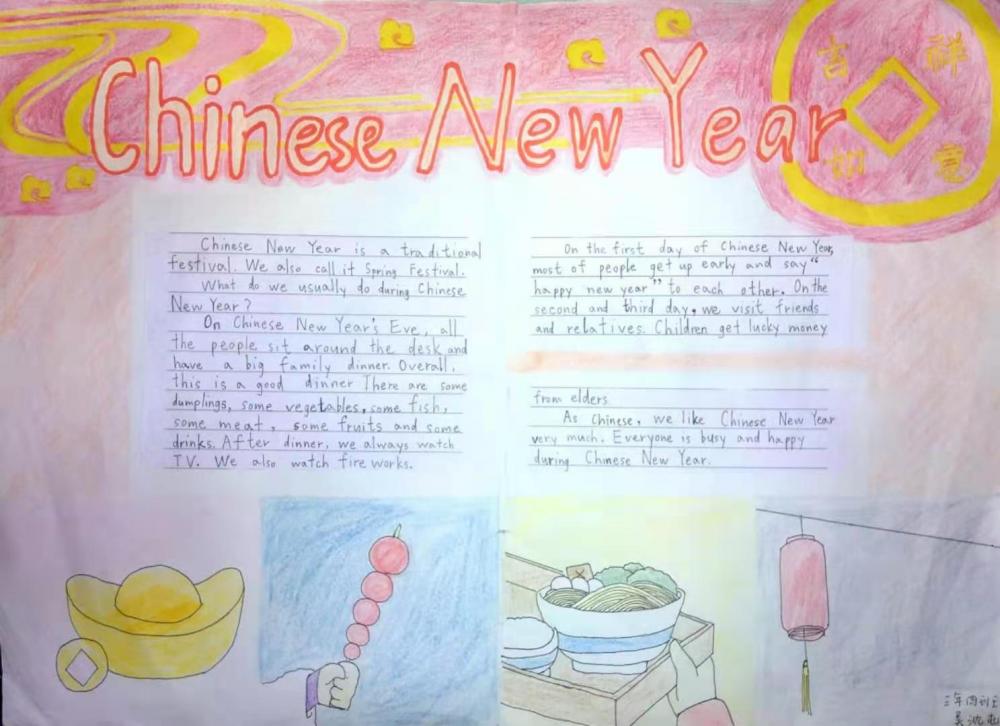 Chinese New Year
吉祥
如意
Chinese New Year is a traditional
festival. We also call it Spring Festival.
What do we usually do during Chinese
New Year?
On Chinese New Year's Eve, all
the people sit around the desk and
have a big family dinner. Overall,
this is a good dinner There are some
dumplings, some vegetables, some fish,
some meat, some fruits and some
drinks. After dinner, we always watch
TV. We also watch fire works.
On the first day of Chinese New Year,
most of people get up early and say "
happy new year" to each other. On the
second and third day, we visit friends
and relatives. Children get lucky money
from elders
As Chinese, we like Chinese New Year
very much. Everyone is busy and happy
during Chinese New Year.
三年四班
吴